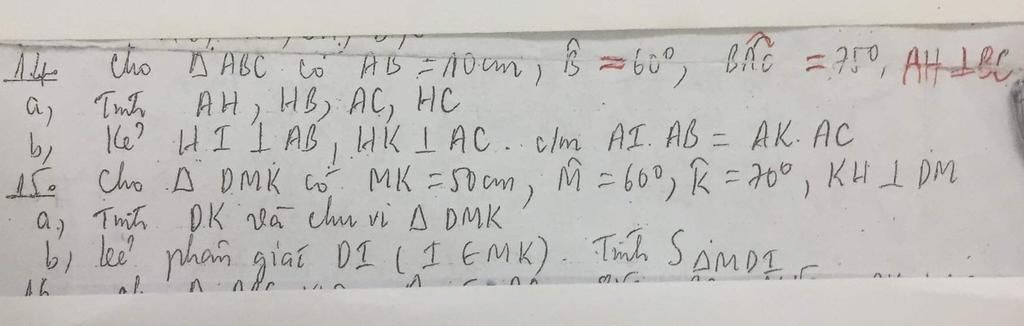 14. Cho Δ ABC có AB = 10cm, B̂ = 60°, BÂC = 75°, AH ⊥ BC
a, Tính AH, HB, AC, HC
b, Kẻ HI ⊥ AB, HK ⊥ AC. c/m AI. AB = AK. AC
15. Cho Δ DMK có MK = 50cm, M̂ = 60°, K̂ = 70°, KH ⊥ DM
a, Tính DK và chu vi Δ DMK
b, kẻ phân giác DI (I ∈ MK). Tính S ΔMDI